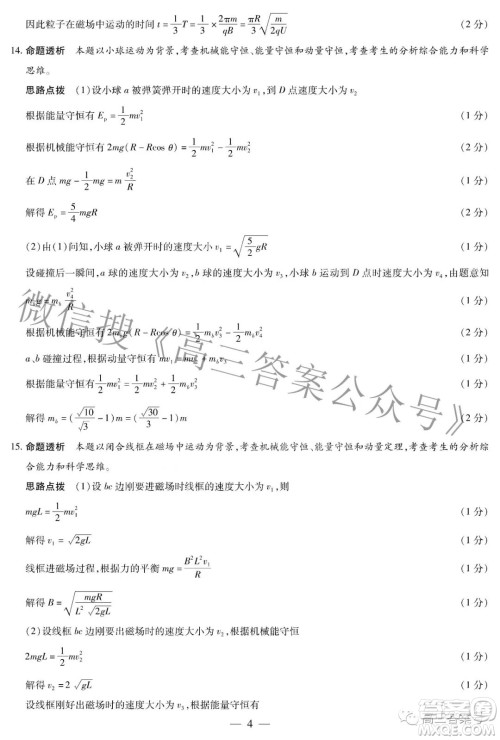 因此粒子在磁场中运动的时间 t = 1/3 T = 1/3 × 2πm/qB = πR/3 √(m/2qU) (2 分)
14. 命题透析 本题以小球运动为背景,考查机械能守恒、能量守恒和动量守恒,考查考生的分析综合能力和科学
思维。
思路点拨 (1)设小球 a 被弹簧弹开时的速度大小为 v₁,到 D 点速度大小为 v₂
根据能量守恒有 Eₚ = 1/2 mv₁² (1 分)
根据机械能守恒有 2mg(R − Rcos θ) = 1/2 mv₁² − 1/2 mv₂² (2 分)
在 D 点 mg − 1/2 mg = m v₂²/R (1 分)
解得 Eₚ = 5/4 mgR (2 分)
(2)由(1)问知,小球 a 被弹开时的速度大小 v₁ = √(5/2 gR) (1 分)
设碰撞后一瞬间,a 球的速度大小为 v₂,b 球的速度大小为 v₃,小球 b 运动到 D 点时速度大小为 v₄,由题意知
g = m_b v₄²/R (1 分)
根据机械能守恒有 (R − Rcos θ) = 1/2 m_b v₃² − 1/2 m_b v₄² (2 分)
a、b 碰撞过程,根据动量守恒有 mv₁ = mv₂ + m_b v₃ (1 分)
根据能量守恒有 1/2 mv₁² = 1/2 mv₂² + 1/2 m_b v₃² (1 分)
解得 m_b = (√10/√3 − 1)m = (√30/3 − 1)m (2 分)
15. 命题透析 本题以闭合线框在磁场中运动为背景,考查机械能守恒、能量守恒和动量定理,考查考生的分析综
合能力和科学思维。
思路点拨 (1)设 bc 边刚要进磁场时线框的速度大小为 v₁,则
mgL = 1/2 mv₁² (1 分)
解得 v₁ = √2gL (1 分)
线框进磁场过程,根据力的平衡 mg = B²L²v₁/R (1 分)
解得 B = √(mgR/(L²√2gL)) (1 分)
(2)设线框 bc 边刚要出磁场时的速度大小为 v₂,根据机械能守恒
2mgL = 1/2 mv₂² (1 分)
解得 v₂ = 2√gL (1 分)
设线框刚好出磁场时的速度大小为 v₃,根据能量守恒有
— 4 —
微信搜《高三答案公众号》